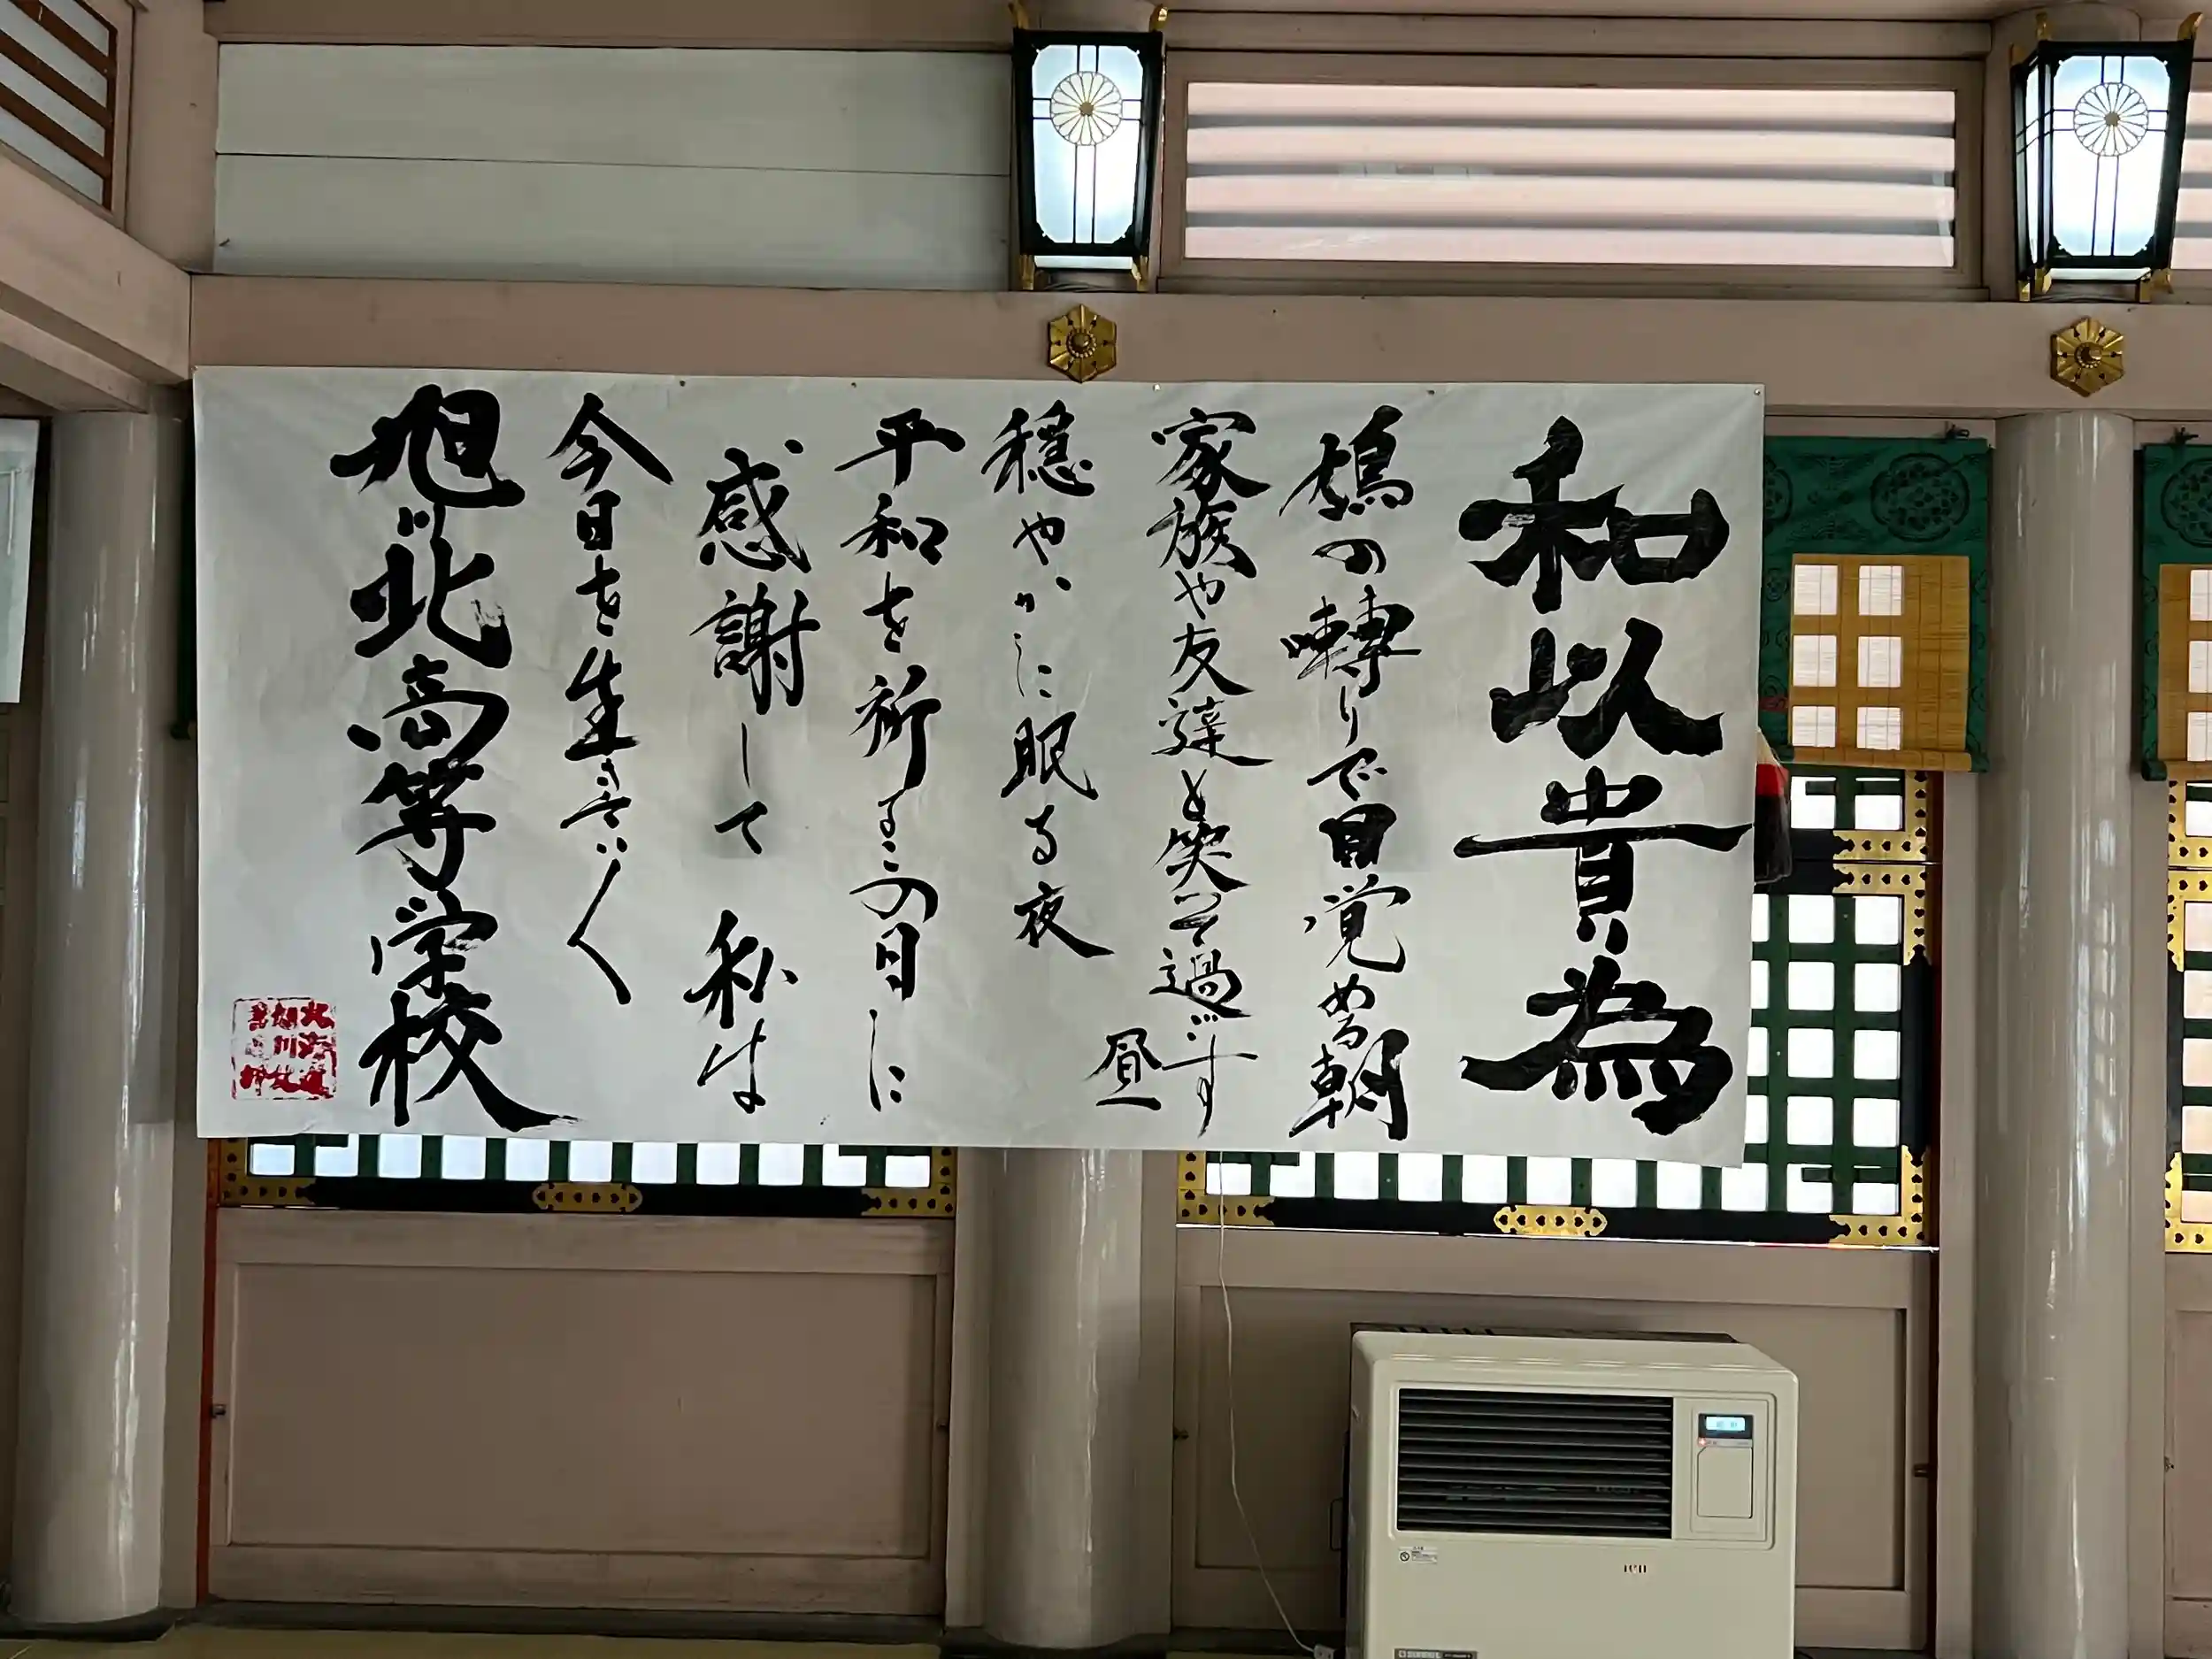 和以貴為
鳩の囀りで目覚める朝
家族や友達と笑って過ごす
昼
穏やかに眠る夜
平和を祈るこの日に
感謝して 私は
今日を生きていく
旭川北高等学校
北海道